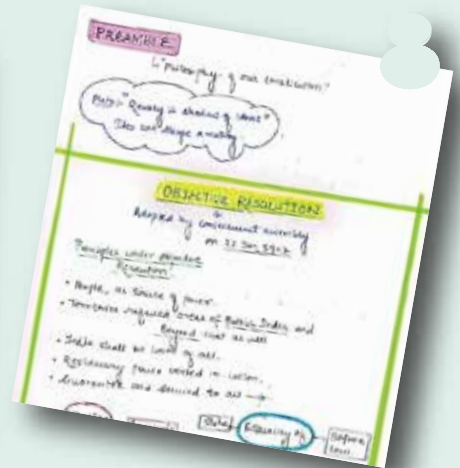 PREAMBLE
"Philosophy of our Constitution"
"Reality is shadow of ideas"
OBJECTIVE RESOLUTION
Adopted by constituent assembly
on 22 Jan 1947
Principles under objective
Resolution
• People, as source of power.
• Territories areas of British India and
Beyond that as well
• India shall be of all.
• Residuary power vested in
• Guarantee and secured to all →
Equality of
Before
law